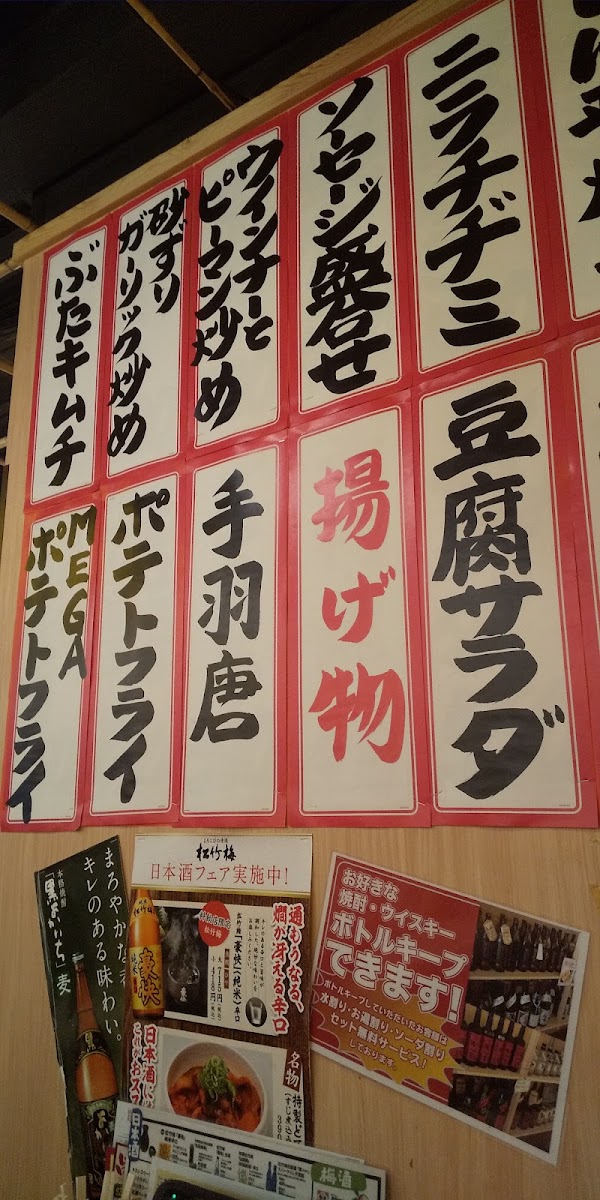 ニラチヂミ
ソーセージ盛合せ
ウインナーと
ピーマン炒め
砂ずり
ガーリック炒め
ぶたキムチ
豆腐サラダ
揚げ物
手羽唐
ポテトフライ
MEGA
ポテトフライ
まろやかな
キレのある味わい。
本格焼酎
「黒よかいち」麦
松竹梅
日本酒フェア実施中!
通もうなる、
燗が冴える辛口
松竹梅「豪快」(純米)辛口
大 715円(税込)
小 418円(税込)
豪快
名物
日本酒に
お好きな
焼酎・ウイスキー
ボトルキープ
できます!
ボトルキープしていただいたお客様は
水割り・お湯割り・ソーダ割り
セット無料サービス!
しております。
日本酒
梅酒